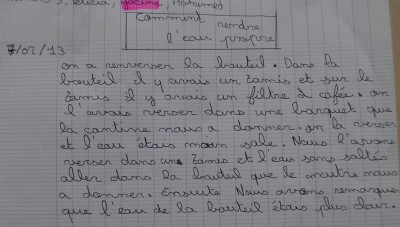 Yacine, Mohamed
Comment rendre
l'eau propre
7/02/13
on a renverser la bouteil. Dans la
bouteil il y avais un tamis et sur le
tamis il y avais un filtre à cafée. on
l'avais verser dans une barquet que
la cantine nous a donner. on la verser
et l'eau étais moin sale. Nous l'avons
verser dans une tamis et l'eau sans saltés
aller dans la bouteil que le maitre nous
a donner. Ensuite Nous avons remarquer
que l'eau de la bouteil étais plus clair.